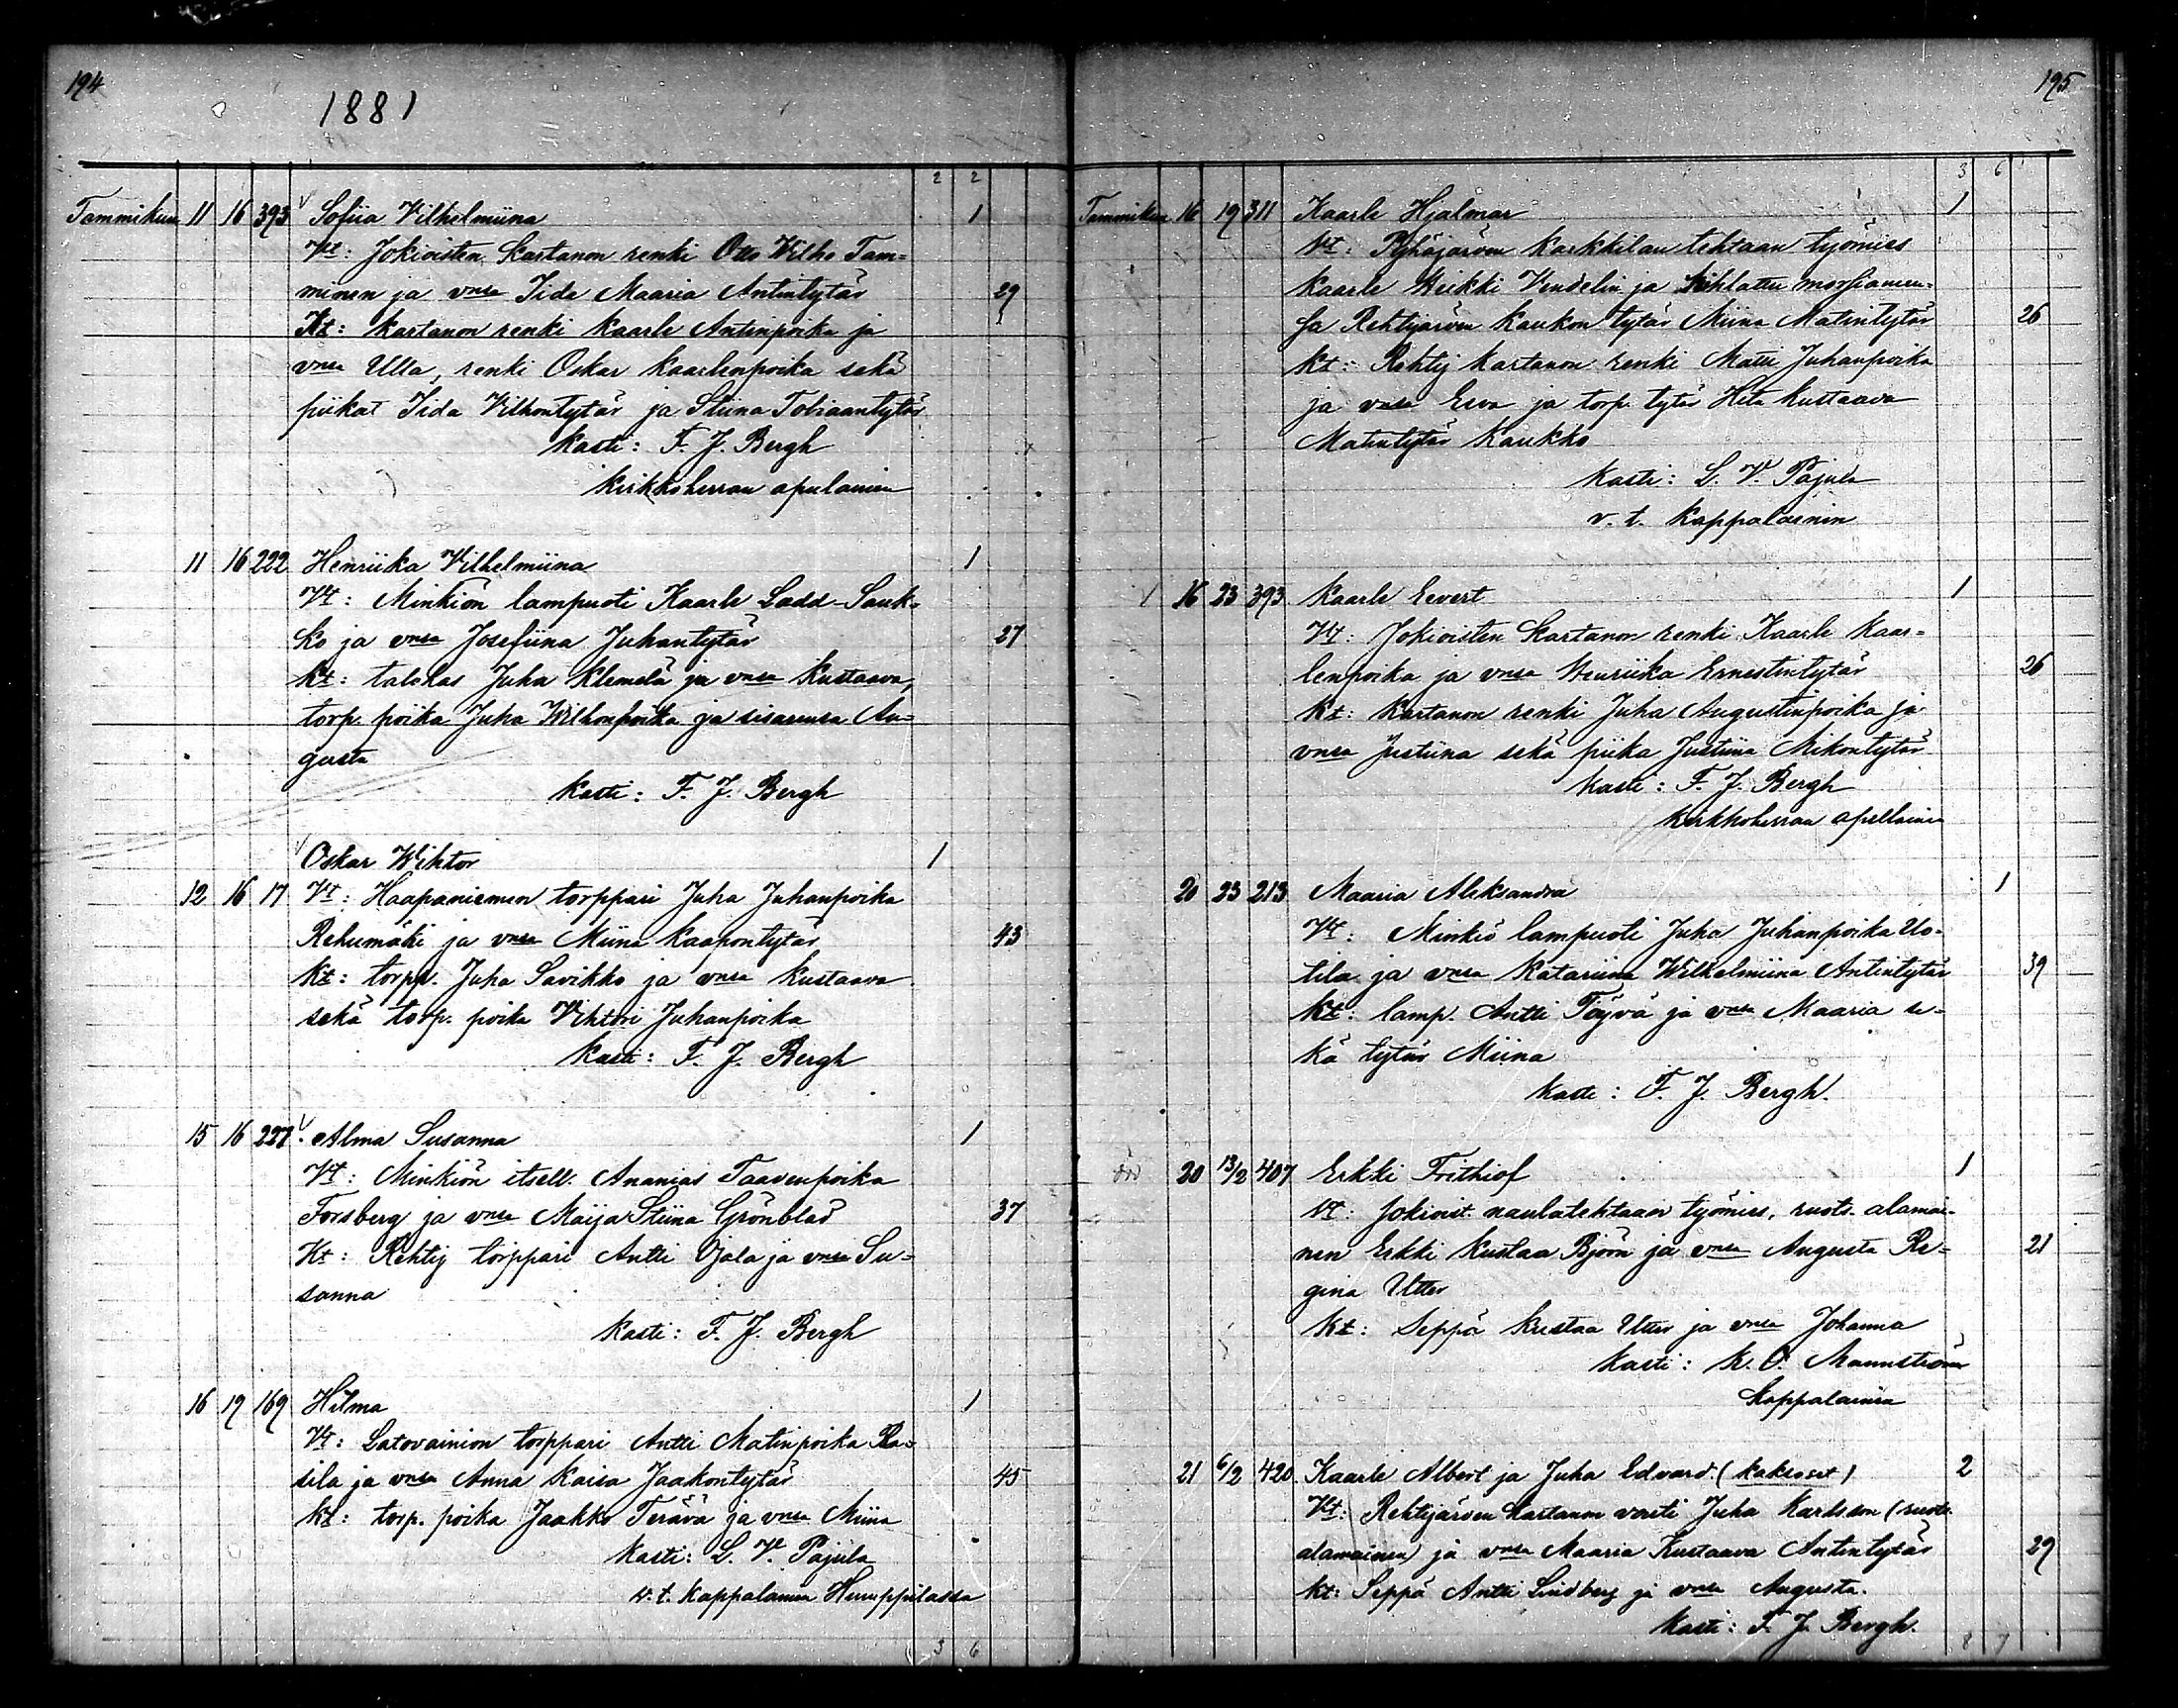 194
1881
2 2
Tammikuu 11 16 393 Sofiia Vilhelmiina 1
Vt: Jokioisten Kartanon renki Otto Wilho Tam=
minen ja vnsa Iida Maaria Antintytär 29
Kt: Kartanon renki Kaarle Antinpoika ja
vnsa Ulla, renki Oskar Kaarlenpoika sekä
piikat Iida Vilhontytär ja Stiina Tobiaantytär
Kasti: F. J. Bergh
Kirkkoherran apulainen
11 16 222 Henriika Vilhelmiina 1
Vt: Minkiön lampuoti Kaarle Ladd-Sauk=
ko ja vnsa Josefiina Juhantytär 27
Kt: talokas Juha Klemelä ja vnsa Kustaava,
torp. poika Juha Wilhonpoika ja sisarensa Au=
gusta
Kasti: F. J. Bergh
Oskar Wihtor 1
12 16 17 Vt: Haapaniemen torppari Juha Juhanpoika
Rehumäki ja vnsa Miina Kaapontytär 43
Kt: torpp. Juha Savikko ja vnsa Kustaava
sekä torp. poika Vihtori Juhanpoika
Kasti: F. J. Bergh
15 16 227 Alma Susanna 1
Vt: Minkiön itsell. Ananias Taavenpoika
Forsberg ja vnsa Maija Stiina Grönblad 37
Kt: Rehtij torppari Antti Ojala ja vnsa Su=
sanna
Kasti: F. J. Bergh
16 19 169 Hilma 1
Vt: Latovainion torppari Antti Matinpoika Ra=
sila ja vnsa Anna Kaisa Jaakontytär 45
Kt: torp. poika Jaakko Terävä ja vnsa Miina
Kasti: L. V. Pajula
v. t. Kappalainen Humppilassa
3 6
195
3 6
Tammikuu 16 19 311 Kaarle Hjalmar 1
Vt: Pyhäjärven Karkkilan tehtaan työmies
Kaarle Heikki Vendelin ja kihlattu morsiamen=
sa Rehtijärven Kaukon tytär Miina Matintytär 26
Kt: Rehtij kartanon renki Matti Juhanpoika
ja vnsa Eeva ja torp. tytär Heta Kustaava
Matintytär Kaukko
Kasti: L. V. Pajula
v. t. Kappalainen
16 23 393 Kaarle Eevert 1
Vt: Jokioisten Kartanon renki Kaarle Kaar=
lenpoika ja vnsa Henriika Ernestintytär 26
Kt: Kartanon renki Juha Augustinpoika ja
vnsa Justiina sekä piika Justiina Mikontytär
Kasti: F. J. Bergh
Kirkkoherran apullainen
20 23 213 Maaria Aleksandra 1
Vt: Minkiö lampuoti Juha Juhanpoika Uo=
tila ja vnsa Katariina Wilhelmiina Antintytär 39
Kt: lamp. Antti Töyvä ja vnsa Maaria se=
kä tytär Miina
Kasti: F. J. Bergh.
20 13/2 407 Erkki Frithiof 1
Vt: Jokioist. naulatehtaan työmies, ruots. alamai=
nen Erkki Kustaa Björn ja vnsa Augusta Re= 21
gina Utter
Kt: Seppä Kustaa Utter ja vnsa Johanna
Kasti: K. O. Mannström
Kappalainen
21 6/2 420 Kaarle Albert ja Juha Edvard. (kaksoset) 2
Vt: Rehtijärven Kartanon vouti Juha Karlsson (ruots.
alamainen) ja vnsa Maaria Kustaava Antintytär 29
Kt: Seppä Antti Lindberg ja vnsa Augusta.
Kasti: F. J. Bergh.
8 7